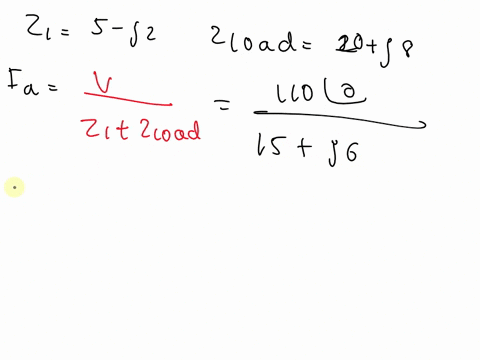 Z1 = 5 - j2 Zload = 10 + j8
Ia = V / Z1 + Zload = 110∠0 / 15 + j6